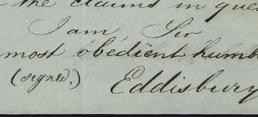 the claims in que
I am, Sir
most obedient humb
(signed.) Eddisbury